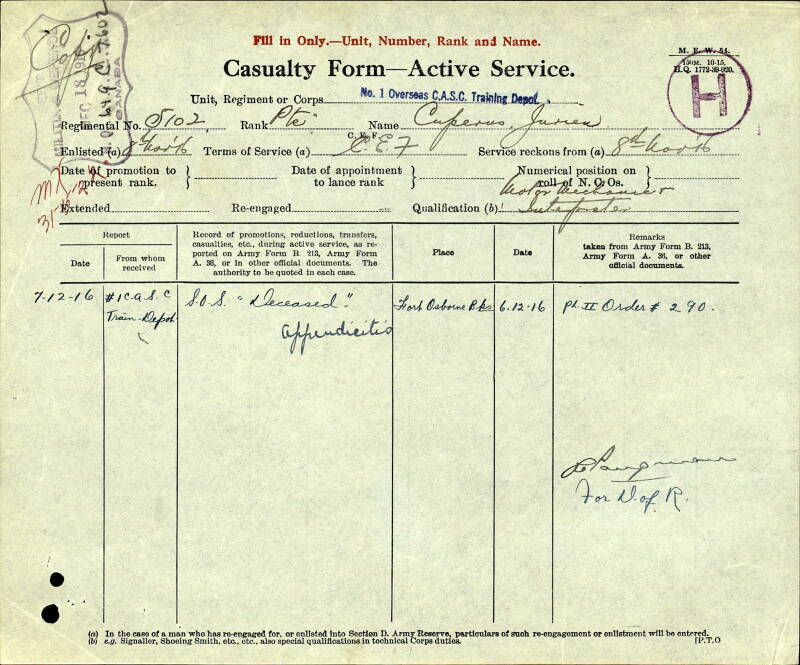 Fill in Only.—Unit, Number, Rank and Name.
M. F. W. 54.
150M. 10-15.
H.Q. 1772-39-920.
Casualty Form—Active Service.
H
Copy
DEC 18 19
CANADA
649-C-7602
Unit, Regiment or Corps No. 1 Overseas C.A.S.C. Training Depot.
Regimental No. 5102 Rank Pte Name Cuperus, Jurien
C. E. F.
Enlisted (a) 8th Nov 16 Terms of Service (a) C. E. F Service reckons from (a) 8th Nov 16
Date of promotion to present rank. } Date of appointment to lance rank } Numerical position on roll of N. C. Os. }
Motor Mechanic &
Extended Re-engaged — Qualification (b) Interpreter
Report
Date
From whom received
Record of promotions, reductions, transfers, casualties, etc., during active service, as reported on Army Form B. 213, Army Form A. 36, or in other official documents. The authority to be quoted in each case.
Place
Date
Remarks
taken from Army Form B. 213, Army Form A. 36, or other official documents.
7-12-16 #1 C.A.S.C S.O.S. "Deceased". Fort Osborne Bks 6.12.16 Pt II Order # 290.
Train. Depot.
Appendicitis
For D. of R.
(a) In the case of a man who has re-engaged for, or enlisted into Section D. Army Reserve, particulars of such re-engagement or enlistment will be entered.
(b) e.g. Signaller, Shoeing Smith, etc., etc., also special qualifications in technical Corps duties.
[P.T.O